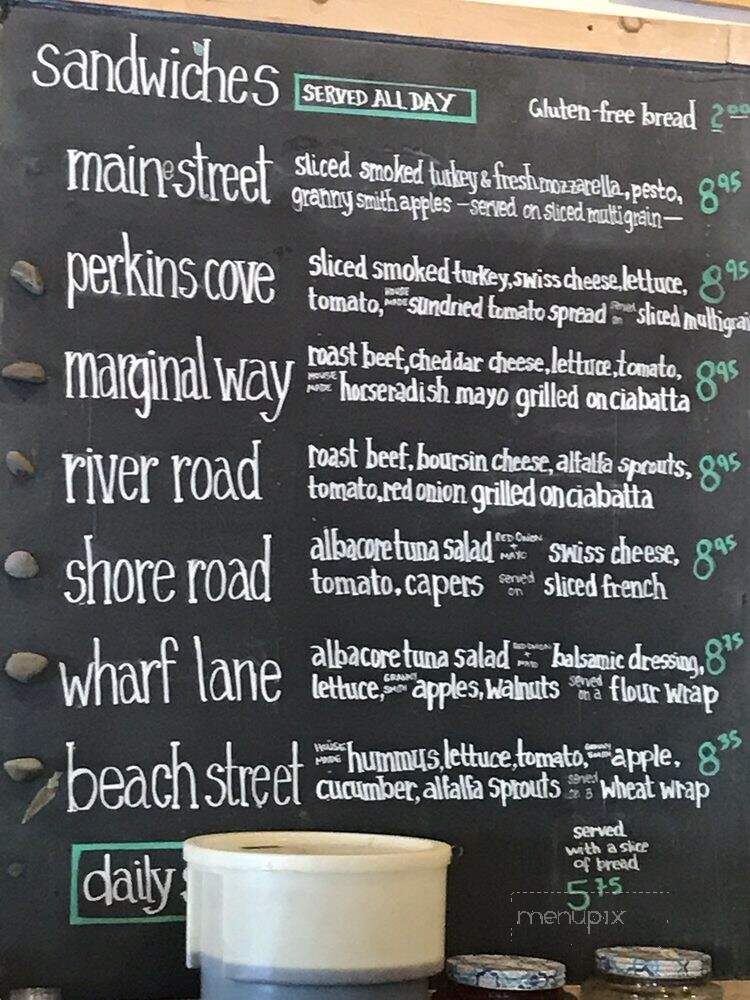 sandwiches SERVED ALL DAY Gluten-free bread 2.00
main-e-street sliced smoked turkey & fresh mozzarella, pesto, 8 95
granny smith apples - served on sliced multigrain -
perkins cove sliced smoked turkey, swiss cheese, lettuce, 8 95
tomato, HOUSE MADE sundried tomato spread served on sliced multigrain
marginal way roast beef, cheddar cheese, lettuce, tomato, 8 95
HOUSE MADE horseradish mayo grilled on ciabatta
river road roast beef, boursin cheese, alfalfa sprouts, 8 95
tomato, red onion grilled on ciabatta
shore road albacore tuna salad RED ONION + MAYO swiss cheese, 8 95
tomato, capers served on sliced french
wharf lane albacore tuna salad RED ONION + MAYO balsamic dressing, 8 75
lettuce, GRANNY SMITH apples, walnuts served on a flour wrap
beach street HOUSE MADE hummus, lettuce, tomato, GRANNY SMITH apple, 8 35
cucumber, alfalfa sprouts served on a wheat wrap
served
with a slice
of bread
daily 5 75
menupix